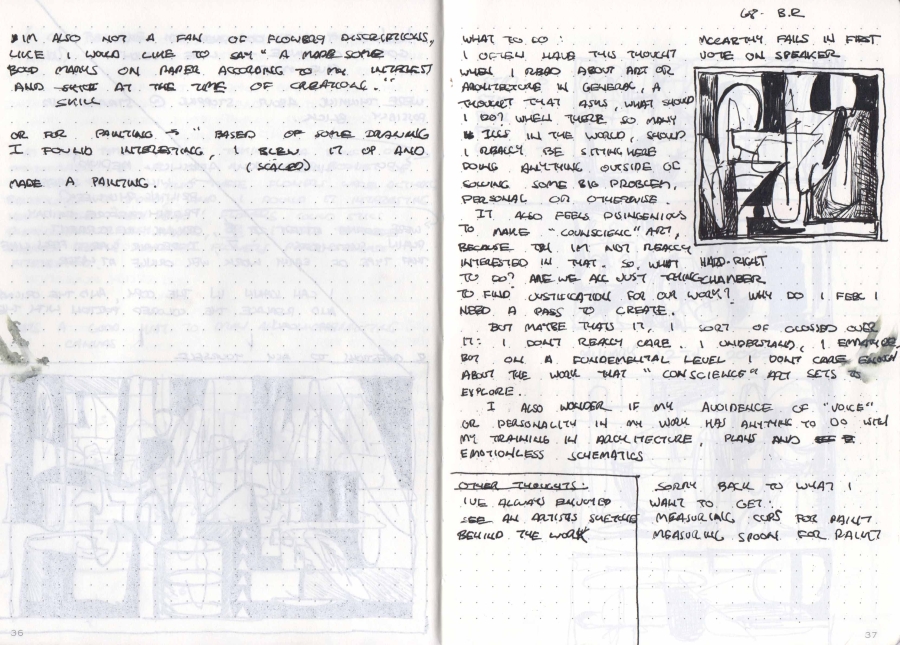 IM ALSO NOT A FAN OF FLOWERY DESCRIPTIONS,
LIKE I WOULD LIKE TO SAY "A MADE SOME
BOLD MARKS ON PAPER ACCORDING TO MY INTEREST
AND AT THE TIME OF CREATION."
SKILL
OR FOR PAINTING → "BASED OF SOME DRAWING
I FOUND INTERESTING, I BLEW IT UP AND
(SCALED)
MADE A PAINTING.
36
68- B.R
WHAT TO DO:
I OFTEN HAVE THIS THOUGHT
WHEN I READ ABOUT ART OR
ARCHITECTURE IN GENERAL, A
THOUGHT THAT ASKS, WHAT SHOULD
I DO? WHEN THERE SO MANY
ILLS IN THE WORLD, SHOULD
I REALLY BE SITTING HERE
DOING ANYTHING OUTSIDE OF
SOLVING SOME BIG PROBLEM,
PERSONAL OR OTHERWISE.
IT ALSO FEELS DISINGENIOUS
TO MAKE "COUNSCIENC" ART,
BECAUSE IM NOT REALLY
INTERESTED IN THAT. SO, WHAT
TO DO? ARE WE ALL JUST TRYING
TO FIND JUSTIFICATION FOR OUR WORK? WHY DO I FEEL I
NEED A PASS TO CREATE.
BUT MAYBE THATS IT, I SORT OF GLOSSED OVER
IT: I DON'T REALLY CARE. I UNDERSTAND, I EMPATHIZE,
BUT ON A FUNDEMENTAL LEVEL I DONT CARE ENOUGH
ABOUT THE WORK THAT "CONSCIENCE" ART SETS TO
EXPLORE.
I ALSO WONDER IF MY AVOIDENCE OF "VOICE"
OR PERSONALITY IN MY WORK HAS ANYTHING TO DO WITH
MY TRAINING IN ARCHITECTURE, PLANS AND
EMOTIONLESS SCHEMATICS
MCCARTHY FAILS IN FIRST
VOTE ON SPEAKER
HARD-RIGHT
CHAMBER
OTHER THOUGHTS:
IVE ALWAYS ENJOYED
SEE AN ARTISTS SKETCHE
BEHIND THE WORK
SORRY BACK TO WHAT I
WANT TO GET:
MEASURING CUPS FOR PAINT
MEASURING SPOON FOR PAINT
37